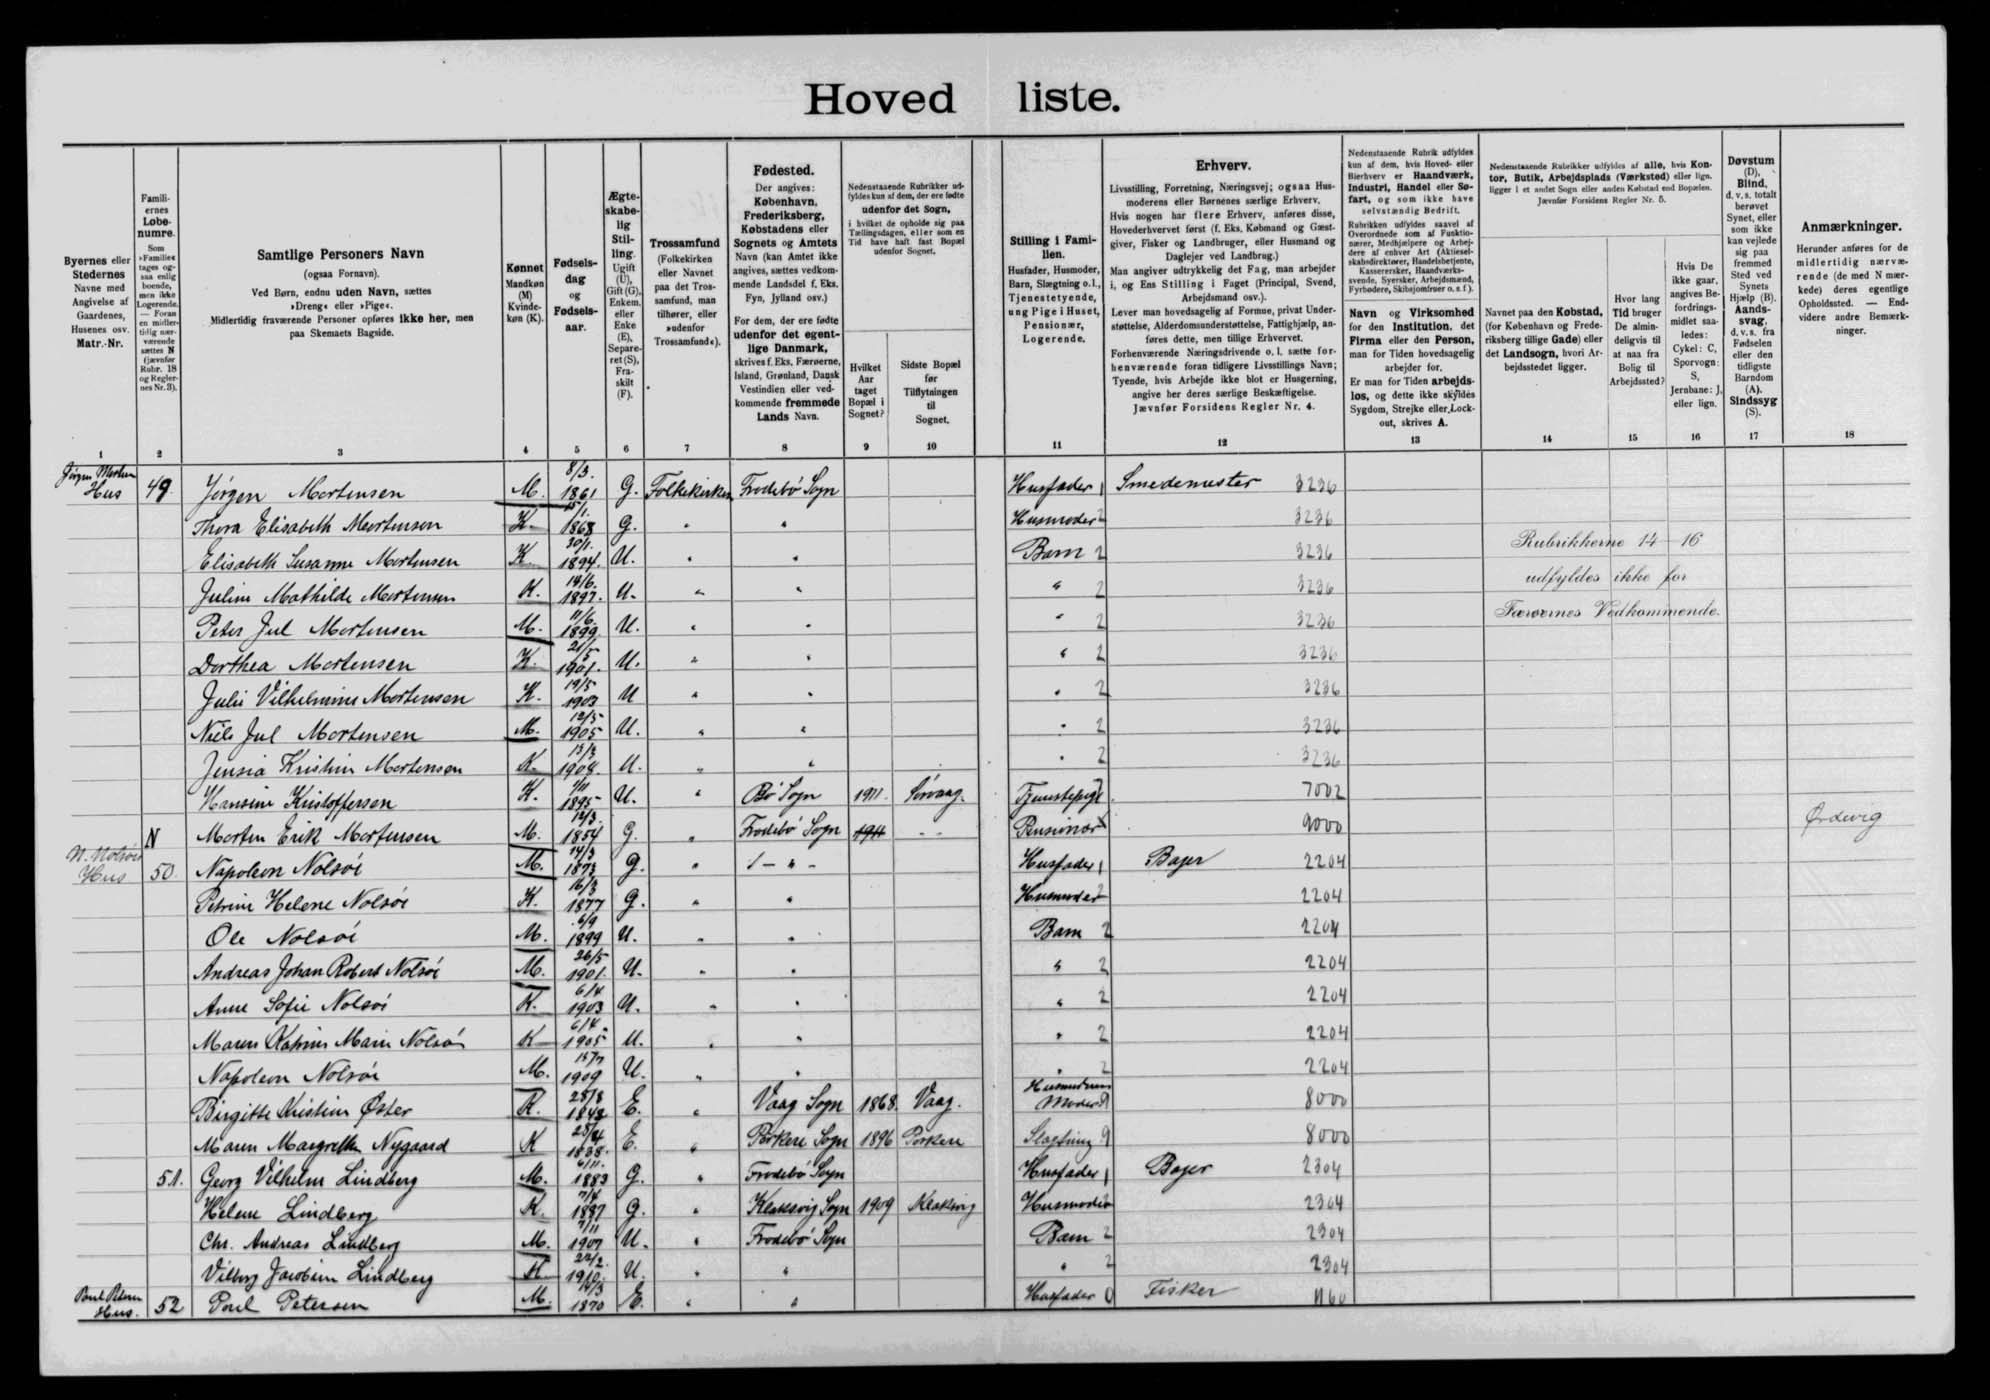 Hoved liste.
Byernes eller Stedernes Navne med Angivelse af Gaardenes, Husenes osv. Matr.-Nr.
Familiernes Løbenumre.
Som »Familie« tages ogsaa enlig boende, men ikke Logerende. — Foran en midlertidig nærværende sættes N (jævnfør Rubr. 18 og Reglernes Nr. 3).
Samtlige Personers Navn
(ogsaa Fornavn).
Ved Børn, endnu uden Navn, sættes
»Dreng« eller »Pige«.
Midlertidig fraværende Personer opføres ikke her, men
paa Skemaets Bagside.
Kønnet
Mandkøn (M) Kvindekøn (K).
Fødselsdag og Fødselsaar.
Ægteskabelig Stilling.
Ugift (U), Gift (G), Enkem. eller Enke (E), Separeret (S), Fraskilt (F).
Trossamfund
(Folkekirken eller Navnet paa det Trossamfund, man tilhører, eller »udenfor Trossamfund«).
Fødested.
Der angives: København, Frederiksberg, Købstadens eller Sognets og Amtets Navn (kan Amtet ikke angives, sættes vedkommende Landsdel f. Eks. Fyn, Jylland osv.)
For dem, der ere fødte udenfor det egentlige Danmark, skrives f. Eks. Færøerne, Island, Grønland, Dansk Vestindien eller vedkommende fremmede Lands Navn.
Nedenstaaende Rubrikker udfyldes kun af dem, der ere fødte udenfor det Sogn, i hvilket de opholde sig paa Tællingsdagen, eller som en Tid have haft fast Bopæl udenfor Sognet.
Hvilket Aar taget Bopæl i Sognet?
Sidste Bopæl før Tilflytningen til Sognet.
Stilling i Familien.
Husfader, Husmoder, Barn, Slægtning o. l., Tjenestetyende, ung Pige i Huset, Pensionær, Logerende.
Erhverv.
Livsstilling, Forretning, Næringsvej; ogsaa Husmoderens eller Børnenes særlige Erhverv.
Hvis nogen har flere Erhverv, anføres disse, Hovederhvervet først (f. Eks. Købmand og Gæstgiver, Fisker og Landbruger, eller Husmand og Daglejer ved Landbrug.)
Man angiver udtrykkelig det Fag, man arbejder i, og Ens Stilling i Faget (Principal, Svend, Arbejdsmand osv.).
Lever man hovedsagelig af Formue, privat Understøttelse, Alderdomsunderstøttelse, Fattighjælp, anføres dette, men tillige Erhvervet.
Forhenværende Næringsdrivende o. l. sætte forhenværende foran tidligere Livsstillings Navn; Tyende, hvis Arbejde ikke blot er Husgerning, angive her deres særlige Beskæftigelse.
Jævnfør Forsidens Regler Nr. 4.
Nedenstaaende Rubrik udfyldes kun af dem, hvis Hoved- eller Bierhverv er Haandværk, Industri, Handel eller Søfart, og som ikke have selvstændig Bedrift.
Rubrikken udfyldes saavel af Overordnede som af Funktionærer, Medhjælpere og Arbejdere af enhver Art (Aktieselskabsdirektører, Handelsbetjente, Kasserersker, Haandværkssvende, Syersker, Arbejdsmænd, Fyrbødere, Skibsjomfruer o. s. f.).
Navn og Virksomhed for den Institution, det Firma eller den Person, man for Tiden hovedsagelig arbejder for.
Er man for Tiden arbejdsløs, og dette ikke skyldes Sygdom, Strejke eller Lockout, skrives A.
Nedenstaaende Rubrikker udfyldes af alle, hvis Kontor, Butik, Arbejdsplads (Værksted) eller lign. ligger i et andet Sogn eller anden Købstad end Bopælen.
Jævnfør Forsidens Regler Nr. 5.
Navnet paa den Købstad, (for København og Frederiksberg tillige Gade) eller det Landsogn, hvori Arbejdsstedet ligger.
Hvor lang Tid bruger De almindeligvis til at naa fra Bolig til Arbejdssted?
Hvis De ikke gaar, angives Befordringsmidlet saaledes: Cykel: C, Sporvogn: S, Jernbane: J, eller lign.
Døvstum (D), Blind, d. v. s. totalt berøvet Synet, eller som ikke kan vejlede sig paa fremmed Sted ved Synets Hjælp (B). Aandssvag, d. v. s. fra Fødselen eller den tidligste Barndom (A). Sindssyg (S).
Anmærkninger.
Herunder anføres for de midlertidig nærværende (de med N mærkede) deres egentlige Opholdssted. — Endvidere andre Bemærkninger.
1 2 3 4 5 6 7 8 9 10 11 12 13 14 15 16 17 18
Jørgen Mortensen Hus 49. Jørgen Mortensen M. 8/3. 1861 G. Folkekirken Frodebø Sogn Husfader 1 Smedemester 3236
Thora Elisabeth Mortensen K. 1868 G. " " Husmoder 2 3236
Elisabeth Susanne Mortensen K. 30/1. 1894. U. " " Barn 2 3236
Juline Mathilde Mortensen K. 14/6. 1897. U. " " " 2 3236
Peter Jul Mortensen M. 11/6. 1899. U. " " " 2 3236
Dorthea Mortensen K. 21/5 1901. U. " " " 2 3236
Julie Vilhelmine Mortensen K. 19/5 1903 U " " " 2 3236
Niels Jul Mortensen M. 12/5 1905 U. " " " 2 3236
Jensia Kristine Mortensen K. 13/3 1908. U. " " " 2 3236
Hansine Kristoffersen K. 1/11 1895 U. " Bø Sogn 1911. Sørvaag. Tjenestepige 7 7002
N Morten Erik Mortensen M. 12/3. 1854 G. " Frodebø Sogn 1911 - - Pensionær 9000 Ørdevig
Rubrikkerne 14-16
udfyldes ikke for
Færøernes Vedkommende.
N. Nolsøes Hus 50. Napoleon Nolsøe M. 14/3 1873 G. " - " - Husfader 1 Bager 2204
Petrine Helene Nolsøe K. 16/3 1877 G. " " Husmoder 2 2204
Ole Nolsøe M. 6/9 1899 U. " " Barn 2 2204
Andreas Johan Robert Nolsøe M. 26/5 1901. U. " " " 2 2204
Anne Sofie Nolsøe K. 6/4 1903 U. " " " 2 2204
Maren Katrine Marie Nolsøe K 6/4. 1905 U. " " " 2 2204
Napoleon Nolsøe M. 15/7 1909 U. " " " 2 2204
Birgitte Kristine Øster K. 25/8 1842 E. " Vaag Sogn 1868. Vaag. Husmoderens Moder 9 8000
Maren Margrethe Nygaard K 1838. E. " Porkere Sogn 1896 Porkere Slægtning 9 8000
51. Georg Vilhelm Lindberg M. 6/11. 1883 G. " Frodebø Sogn Husfader 1 Bager 2304
Helene Lindberg K. 7/4 1887 G. " Klaksvig Sogn 1909 Klaksvig Husmoder 2304
Chr. Andreas Lindberg M. 7/11 1907 U. " Frodebø Sogn Barn 2 2304
Vilborg Jacobine Lindberg K. 22/2. 1910. U. " " " 2 2304
Poul Petersen Hus. 52 Poul Petersen M. 14/3 1870 E. " " Husfader 0 Fisker 1160